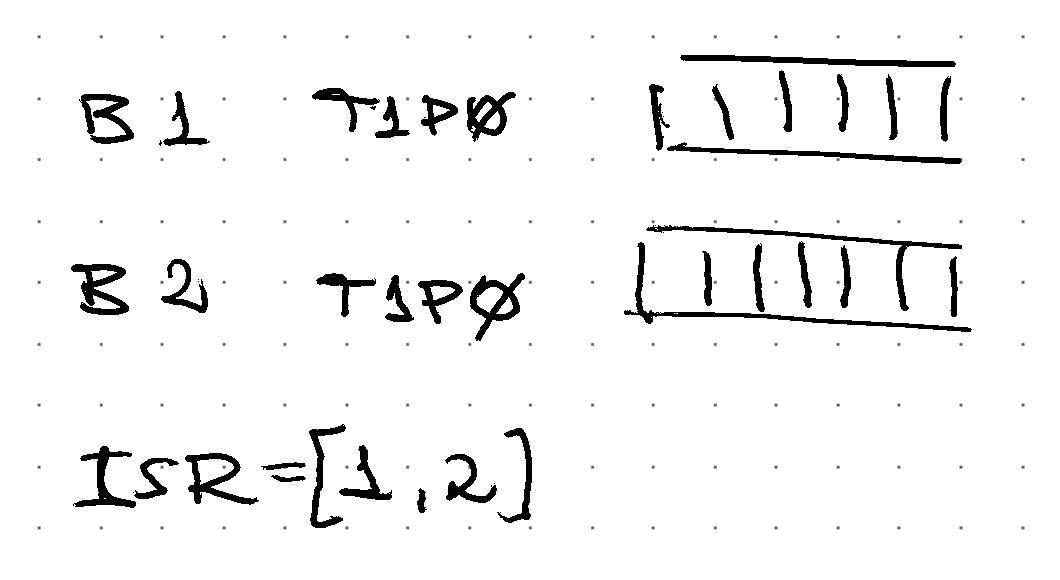 B 1 T1P0
B 2 T1P0
ISR=[1,2]